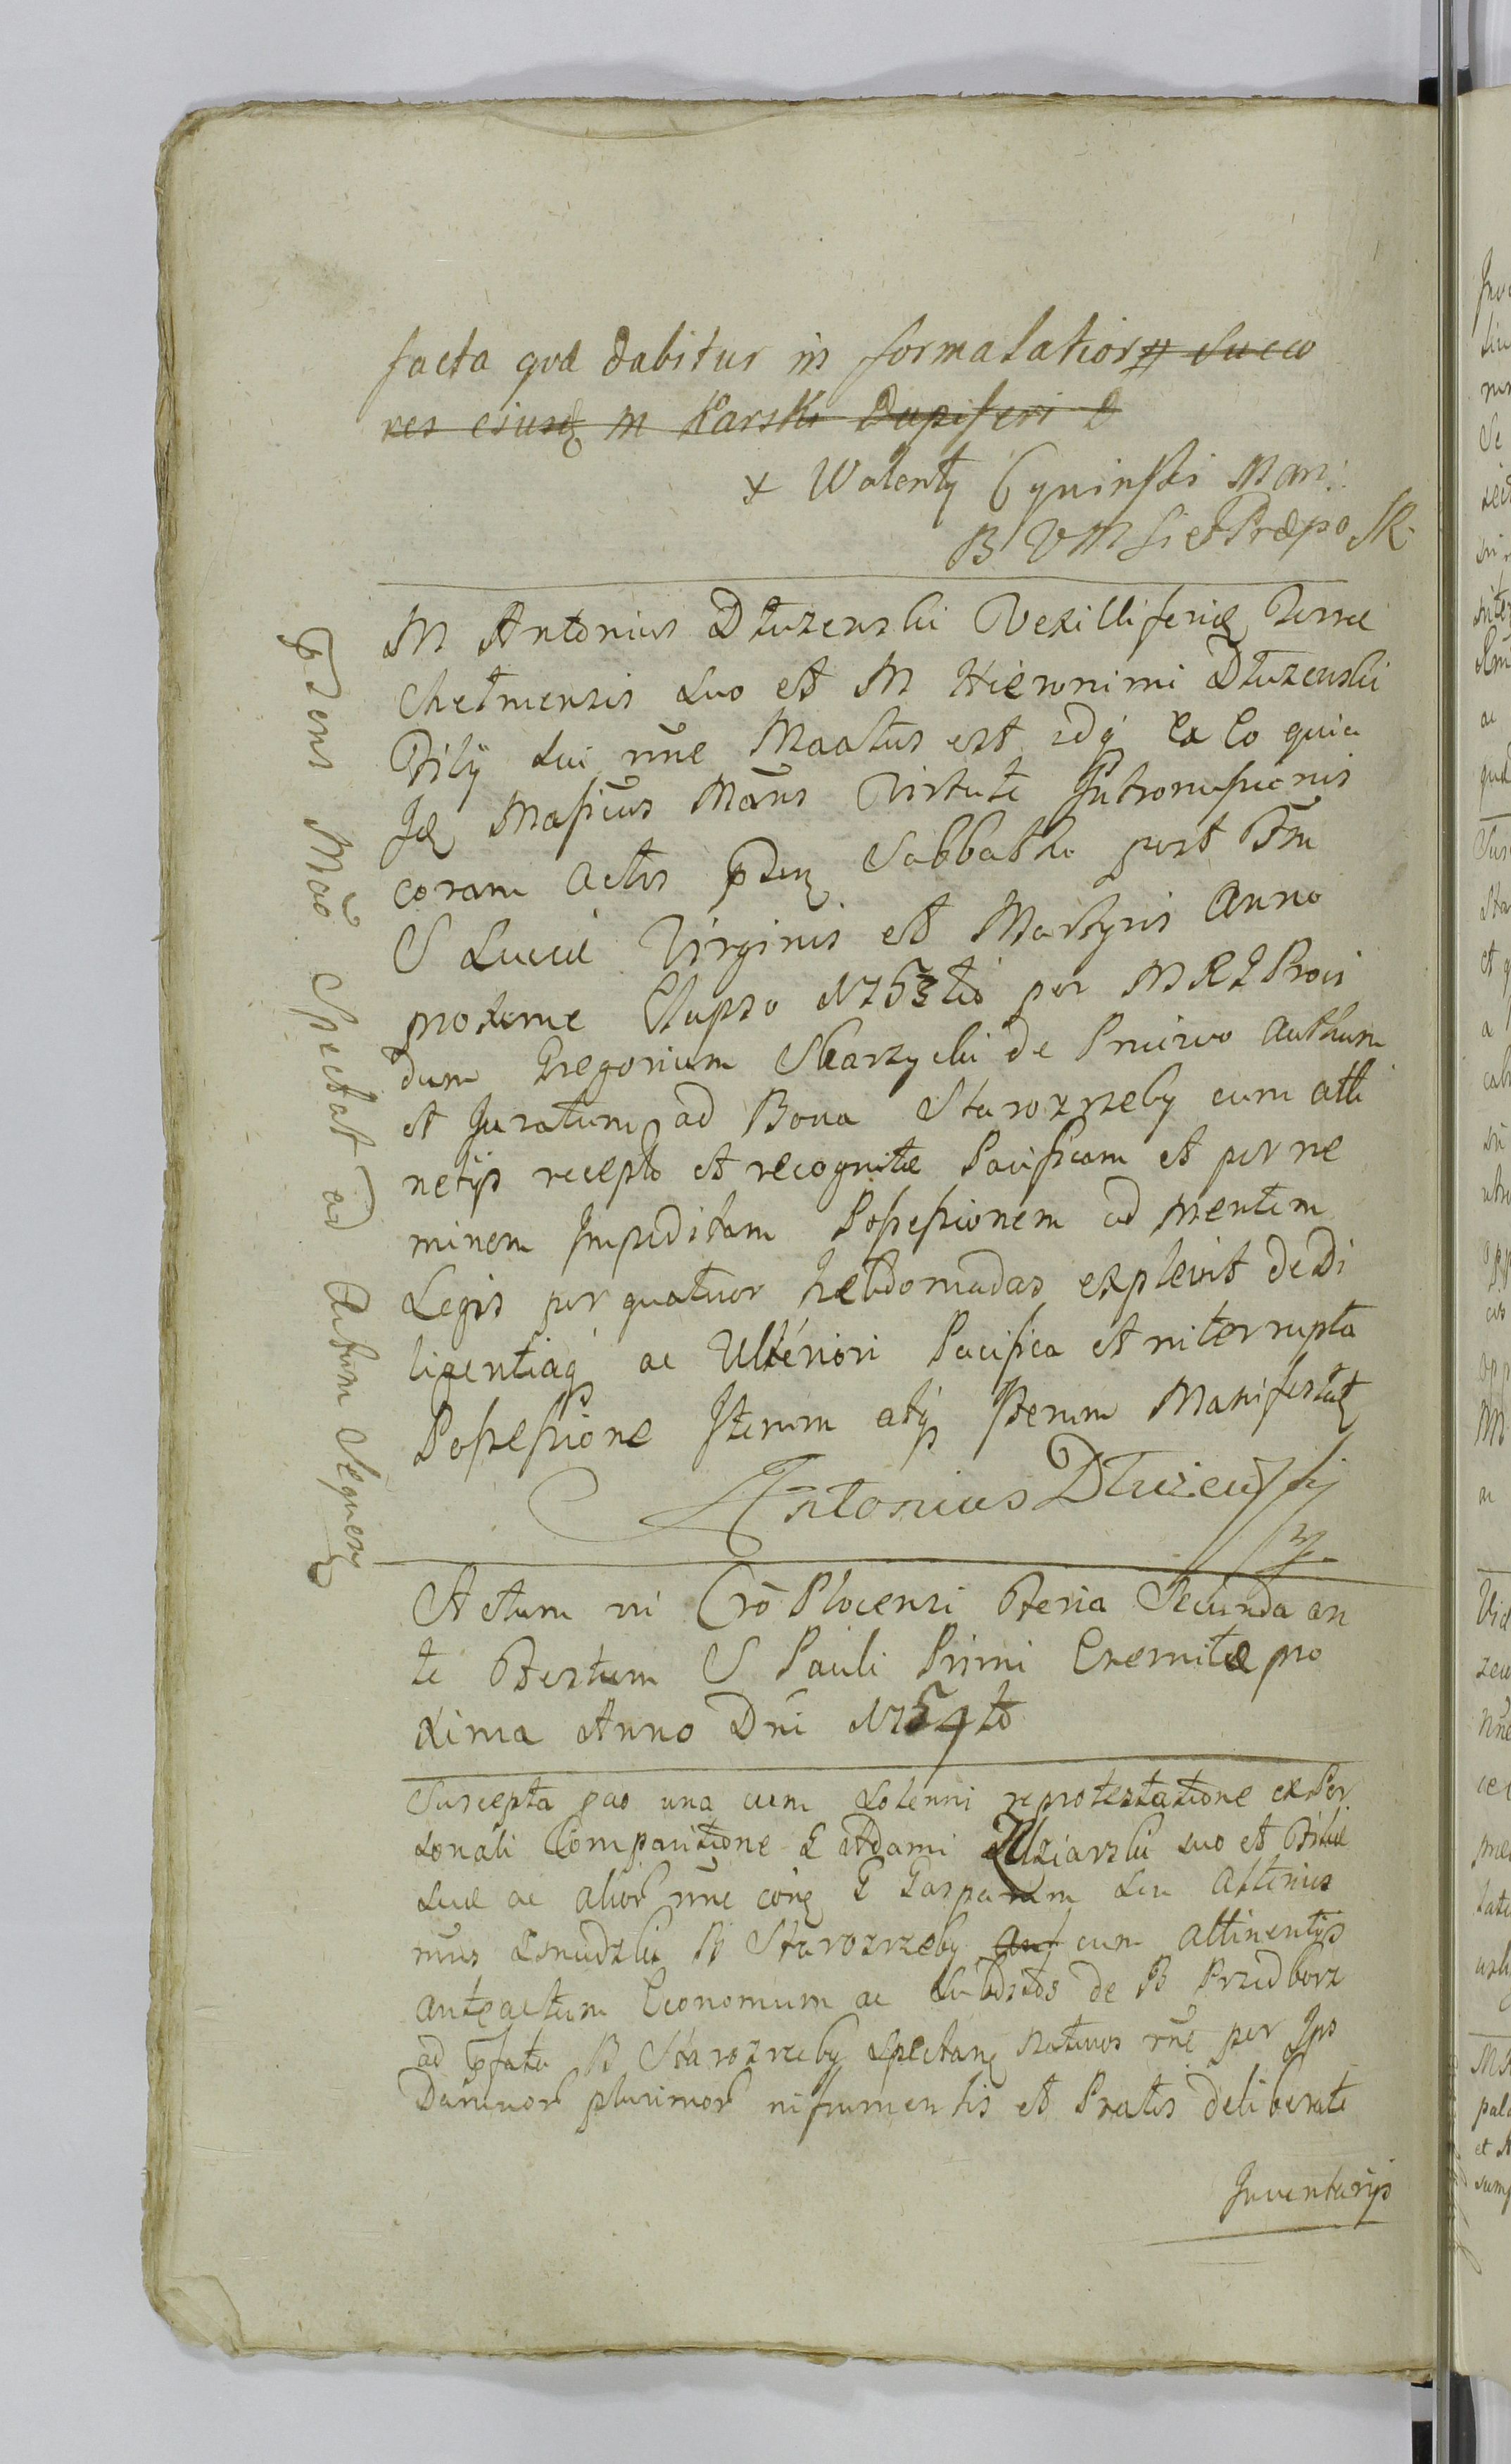 facta qvæ dabitur in formalatior# succo
res ejusdę M Karski Dapiferi D
x Walenty Cywinski Man:
B V M Si et Præpo SR.
M Antonius Dłuzenski Vexilliferidę Terræ
Chełmensis Suo et M Hieronimi Dłuzenski
Filÿ Sui nn̄e Maatus est idq́ Ex Eo quia
Idę Mansficus Mān̄s Virtute Intromissionis
coram Actis pden̄ę Sabbatho post Fm
S Luciæ Virginis et Martyris Anno
proxime Elapso 1753tio per M R I Provi
dum Gregorium Skarzycki de Pniewo Authum
et Juratum ad Bona Starozrzeby cum atti
netijs recepto et recognitæ Pacificam et per ne
minem Impeditam Possessionem ad mentem
Legis per quatuor hebdomadas explevit de Di
ligentiaq́ ac Ulteriori Pacifica et niterrupta
Possessione Iterum atq́ Iterum Manifestatę
Antonius Dłużewski
mp
Ptens Mao Spectat ad Actum Sequenę
Actum in Crō Plocensi Feria Secunda an
te Festum S Pauli Primi Eremitæ pro
xima Anno Dni 1754to
Suscepta pao una cum Solenni reprotestatione ex Per
sonali Comparitione G Adami Zdziarski suo et Filiæ
Suæ ac alior nn̄e conę G Gasparum Seu Alterius
mus Zmudzki B Starozrzeby cum attinentijs
anteactum Economum ac Subditos de B Przedborz
ad pfata B Starozrzeby Spectanę nativos rn̄e per Ips
Damnor plurimor nifrumentis et Pratis deliberate
Inventarijs